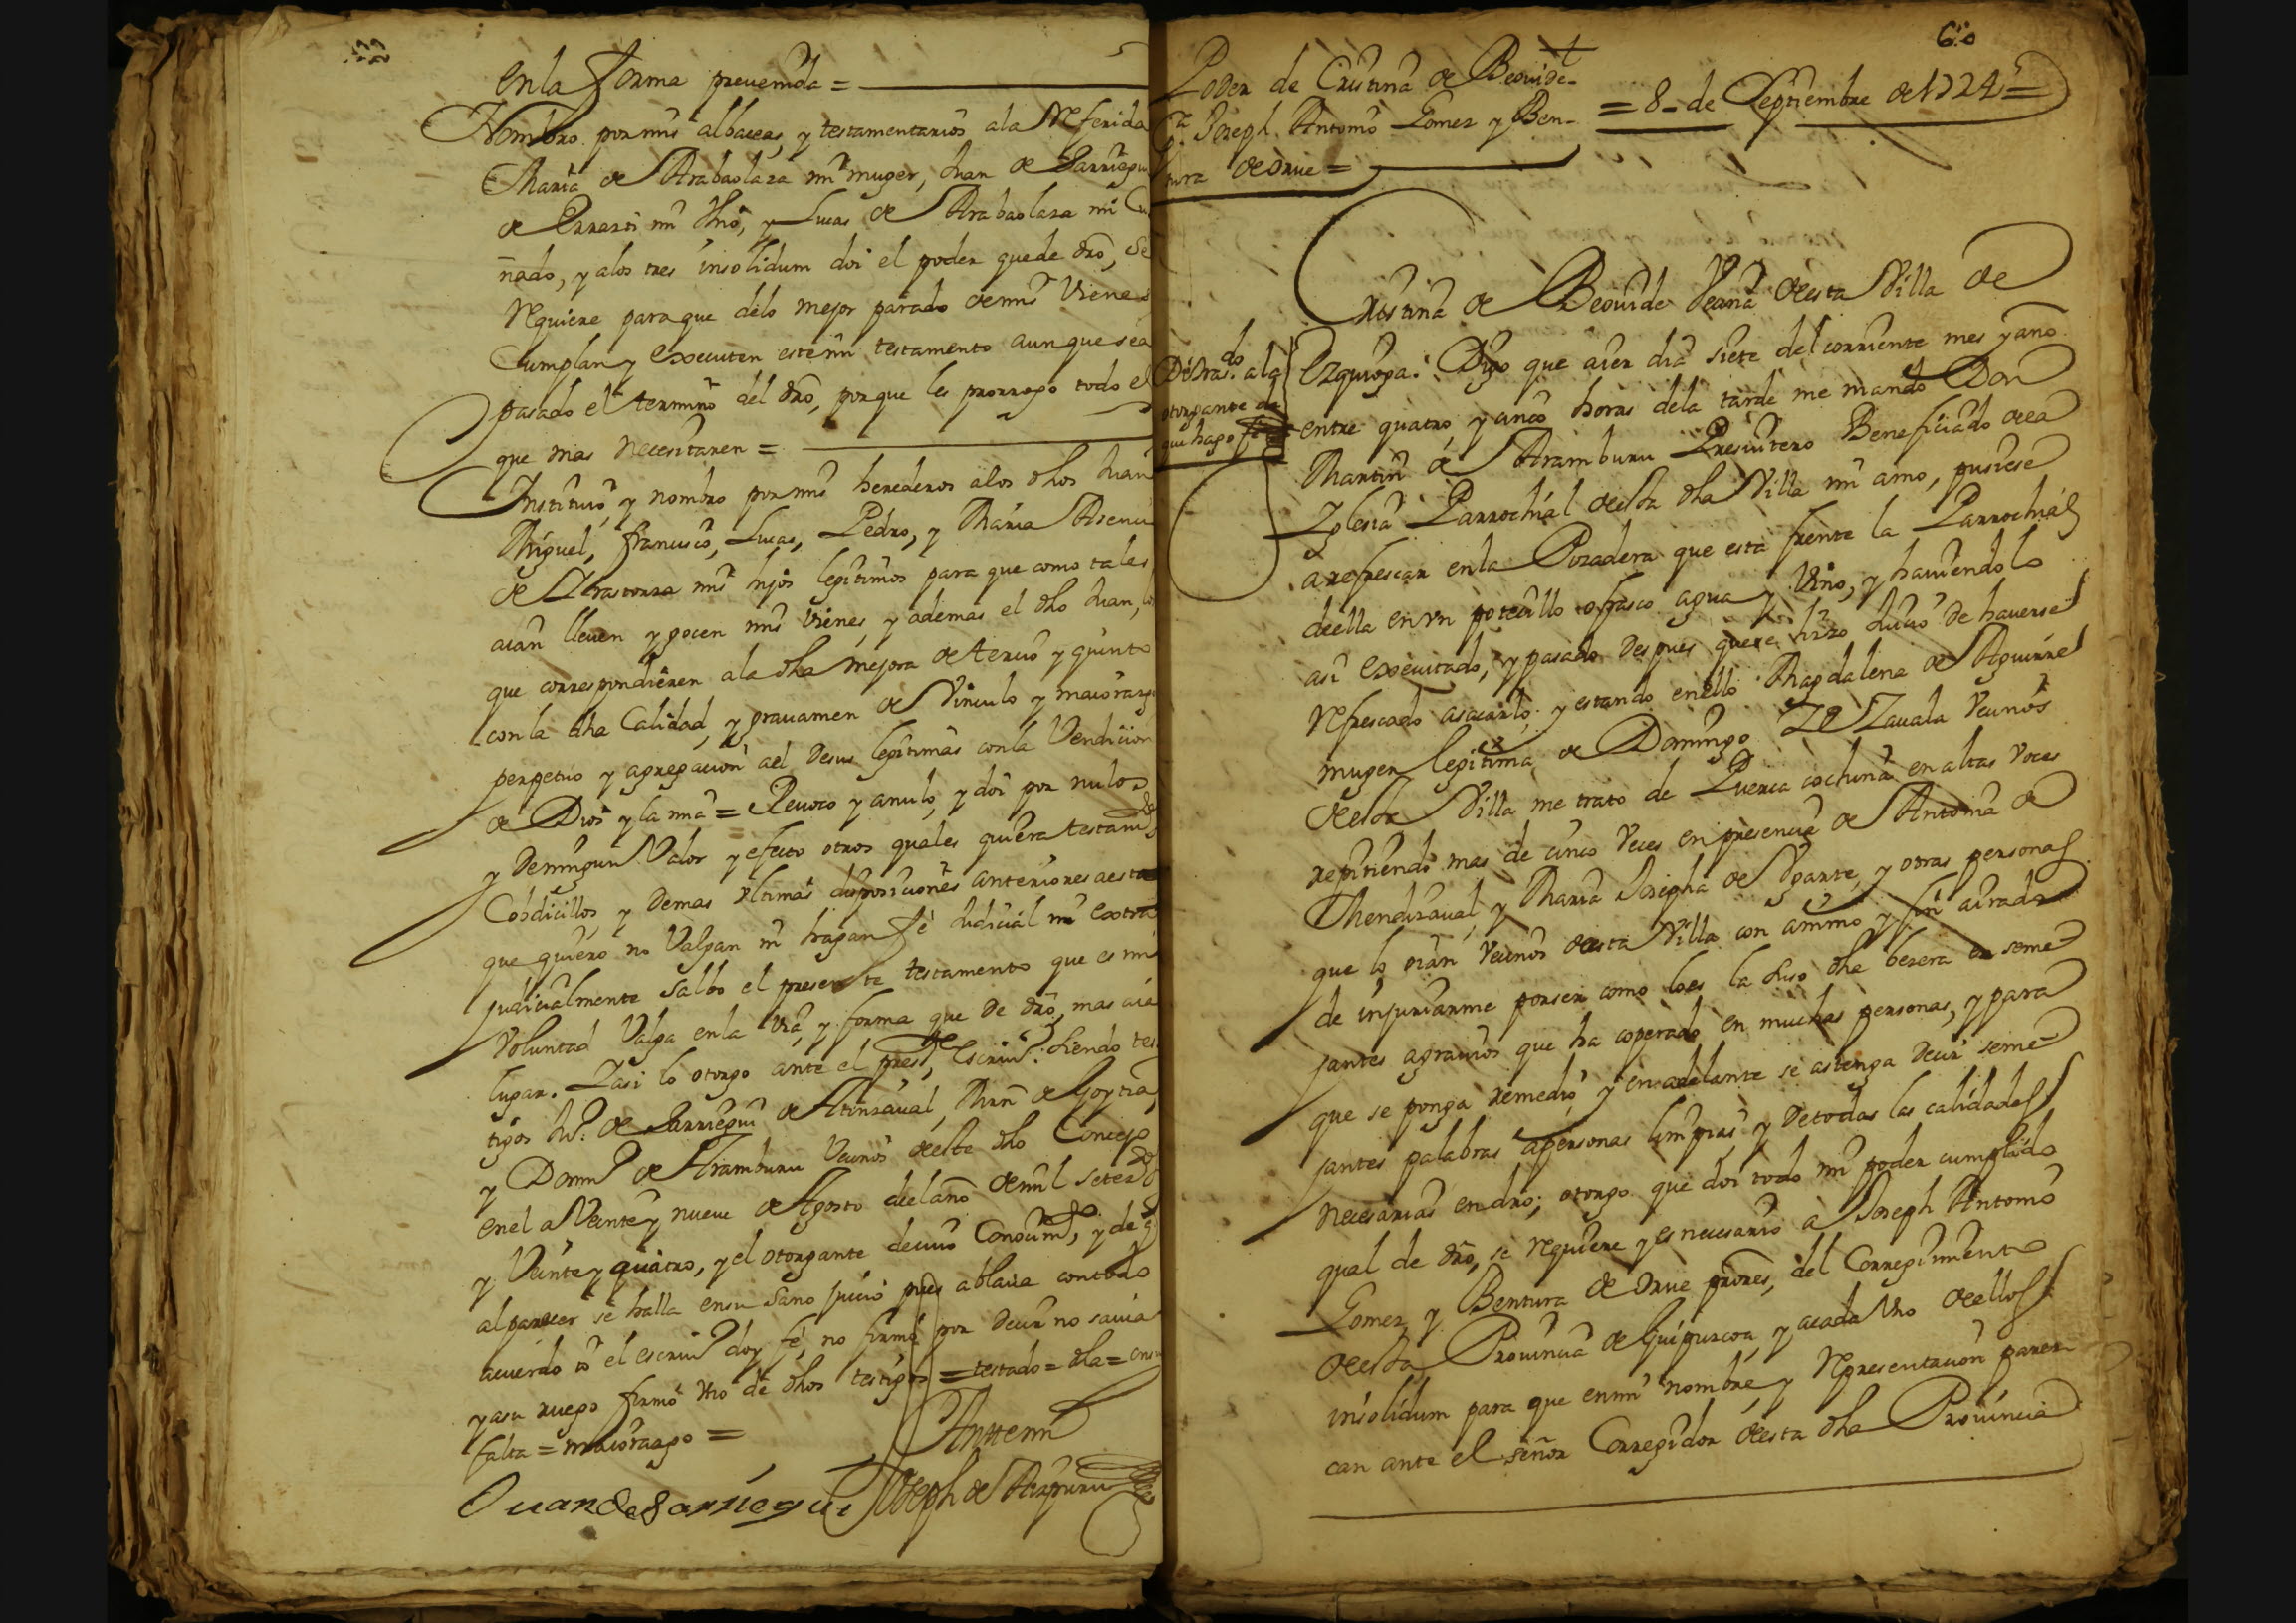 en la forma prevenida =
Nombro por mis albaceas, y testamentarios ala Referida
Maria de Arabaolaza mi muger, Juan de Sarriegui
de Errazti mi thio, y Lucas de Arabaolaza mi Cu
ñado, y alos tres insolidum doi el poder que de dro, se
Requiere para que delo mejor parado de mis vienes
Cumplan y executen este mi testamento aunque sea
pasado el termino del dro, porque les prorrogo todo el
que mas necesitaren =
Instituio, y nombro por mis herederos alos dhos Juan
Miguel, francisco, Lucas, Pedro, y Maria Asencia
de mis hijos legitimos para que como tales
aian lleven y gocen mis vienes, y ademas el dho Juan,
que correspondieren ala dha Mejora de tercio y quinto
con la dha Calidad, y gravamen de Vinculo y maiorazgo
perpetuo y agregacion ael de sus legitimas con la Vendicion
de Dios y la mia = Revoco y anulo, y doi por nulos
y de ningun Valor y efecto otros quales quiera testamtos
Cobdicillos, y demas vltimas disposiciones anteriores a esta
que quiero no Valgan ni hagan fé Judicial ni extra
judicialmente salbo el presente testamento que es mi
Voluntad Valga en la via, y forma que de dro, mas aia
lugar. Y asi lo otorgo ante el preste, escriuo: siendo tes
tigos de Sarriegui de Atinzaval, Mrn de Goytia,
y Domo de Aramburu Vecinos de este dho Concejo
en el a Veinte y nueve de Agosto de el año de mil setezos
y Veinte y quatro, y el otorgante de cuio Conocimto, y de q
al parecer se halla en su sano juicio pues ablava con todo
acuerdo io el escriuo doy fé, no firmó por decir no savia
y a su ruego firmó vno de dhos testigos = testado = dha = ensu
falta = maiorazgo =
Anttemi
Juan de Sarriegui Joseph de Aizpuru
60
Poder de Cristina de Beovide
Pa Joseph Antonio Gomez y Ben-
tura de Orue =
= 8 - de Septiembre de 1724 =
Cristina de Beovide Vecina de esta Villa de
Ezquioga: Digo que aier dia siete del corriente mes y año
entre quatro, y cinco horas dela tarde me mando Don
Martin de Aramburu Presuitero Beneficiado de la
Iglesia Parrochial de esta dha Villa mi amo, pusiese
a refrescar en la Pozadera que esta frente la Parrochial
de ella en vn potecillo o frasco agua y Vino, y haviendolo
asi executado, y pasado despues que se hizo Juicio de haverse
Refrescado a sacarlo; y estando en ello Magdalena de Aguirre
muger legitima de Domingo de Zavala Vecinos
de esta Villa me trato de Puerca cochina en altas Voces
repitiendo mas de cinco Veces en presencia de Antonia de
Mendizaval, y Maria Josepha de Ygarte, y otras personas
que lo oian Vecinos de esta Villa con animo y fin airado
de injuriarme por ser como lo es la suso dha en seme
jantes agravios que ha coperado en muchas personas, y para
que se ponga remedio, y en adelante se astenga decir seme
jantes palabras a personas limpias y de todas las calidades
necesarias en dro; otorgo que doi todo mi poder cumplido
qual de dro, se requiere y es necesario a Joseph Antonio
Gomez y Bentura de Orue prores, del Corregimiento
de esta Provincia de Guipuzcoa, y a cada vno de ellos
insolidum para que en mi nombre, y Representacion parez
can ante el señor Corregidor de esta dha Provincia
Des trasdo ala
otorgante de
que hago fé